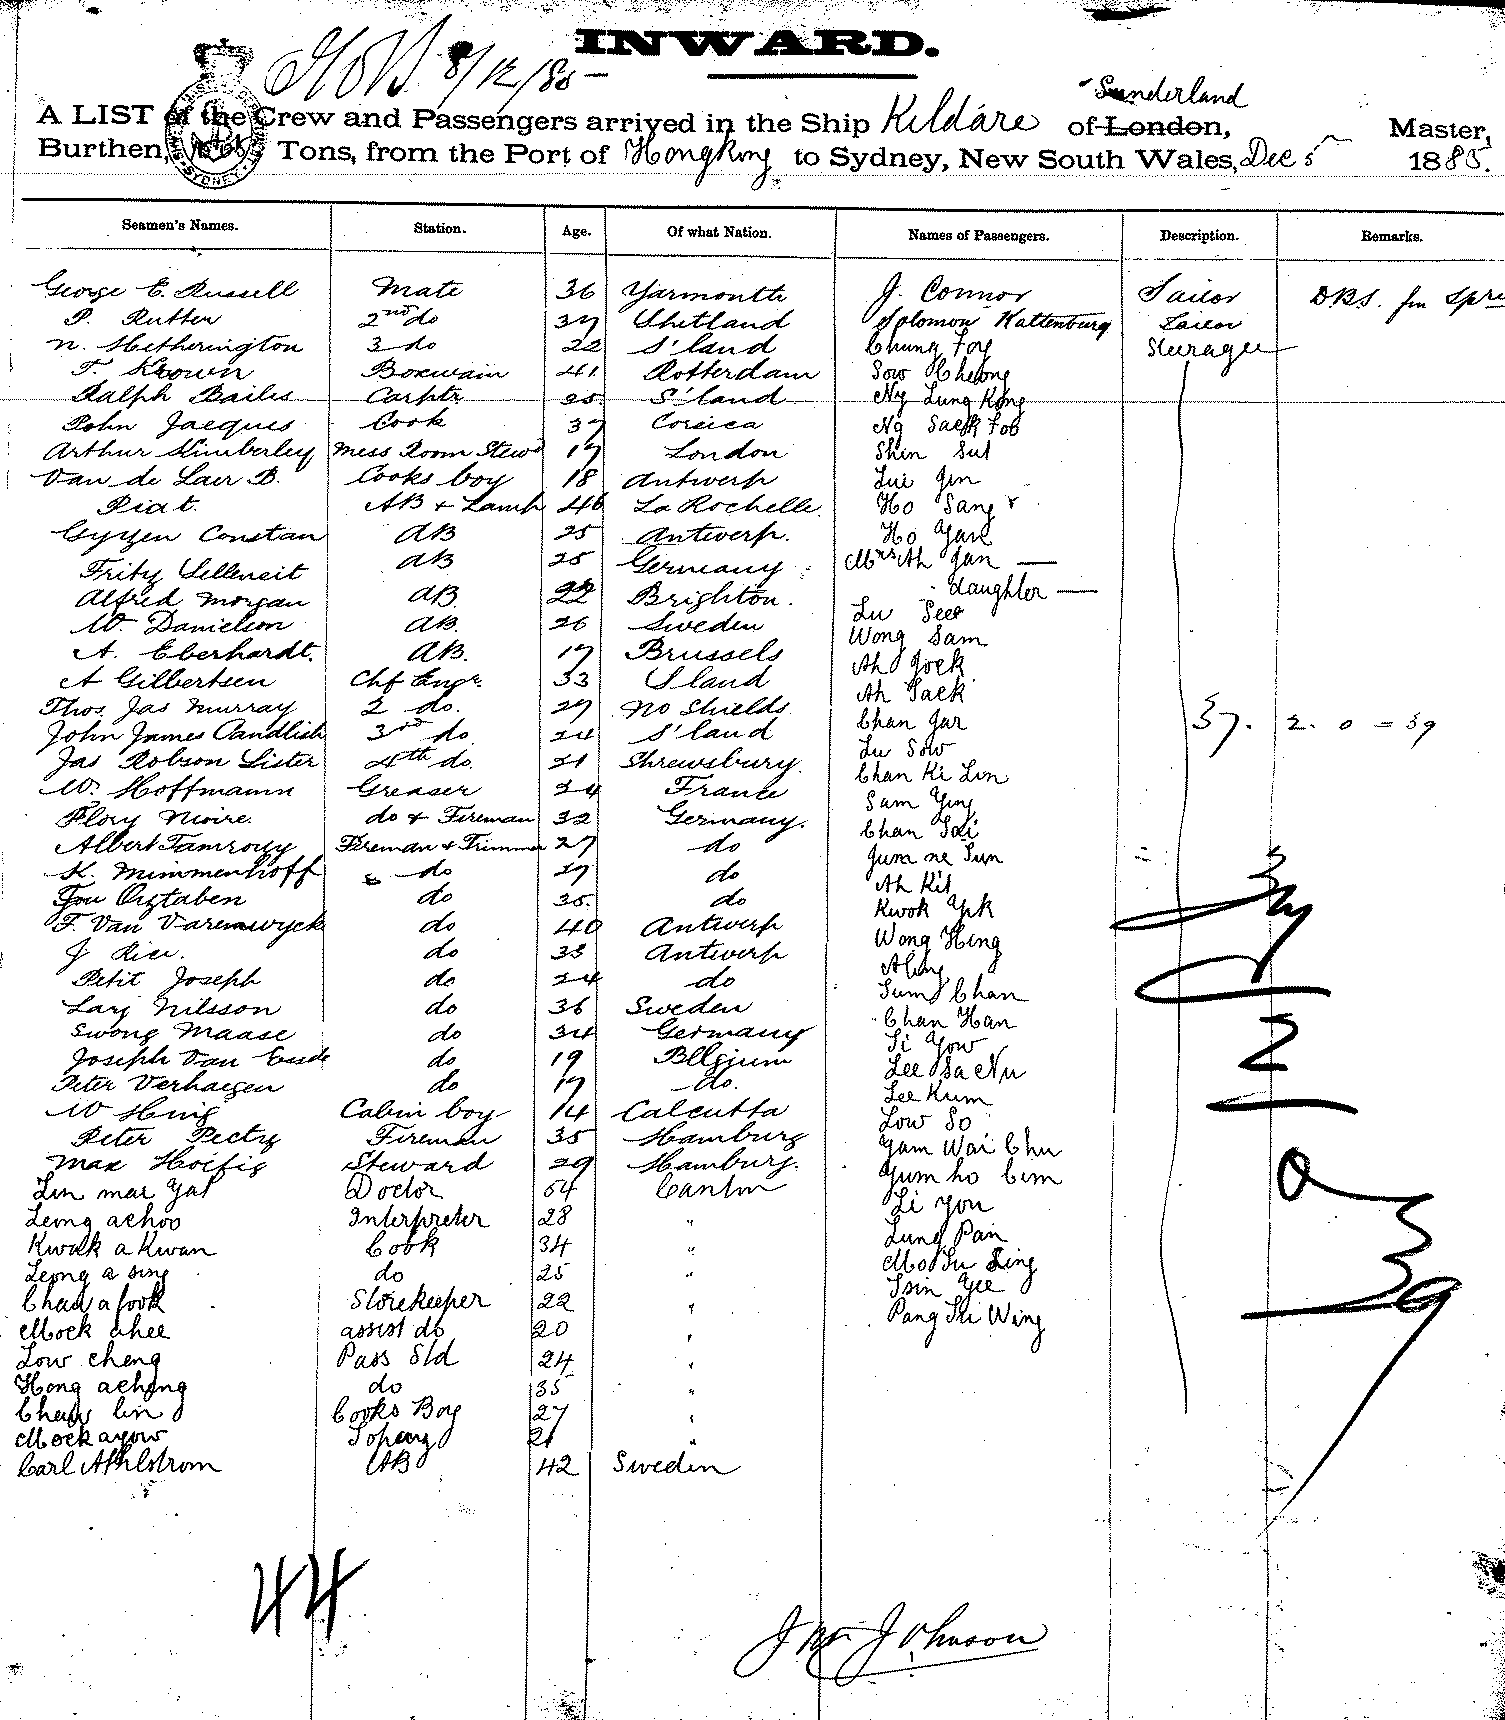 INWARD.
8/12/85
Sunderland
A LIST of the Crew and Passengers arrived in the Ship Kildare of London, Master,
Burthen, Tons, from the Port of Hongkong to Sydney, New South Wales, Dec 5 1885.
Seamen's Names. Station. Age. Of what Nation. Names of Passengers. Description. Remarks.
George E. Russell Mate 36 Yarmouth J. Connor Sailor DBS. fm
P. Rutter 2nd do 37 Shetland Solomon Kaltenburg
N. Hetherington 3 do 22 S'land Chung Foy Steerage
T. Krown Boxwain 41 Rotterdam Sow Cheong
Ralph Bailes Carptr 25 S'land Ng Lung Kong
John Jacques Cook 37 Corsica Ng Fob
Arthur Kimberley Mess Room Stewd 17 London Shin Sut
Van de Laer B. Cooks boy 18 Antwerp Lui Gin
Piat. AB & Lamp 46 La Rochelle Ho Sang
Gyzen Constan AB 25 Antwerp. Ho Yane
Fritz Lelleneit AB 25 Germany Mrs Ah Yan —
Alfred Morgan AB 22 Brighton. daughter —
W. Danielson AB. 26 Sweden Lu See
A. Eberhardt. AB. 17 Brussels Wong Sam
A Gilbertsen Chf Engr. 33 S land Ah Gock
Thos. Jas Murray 2 do. 27 No Shields Ah Sack
John James Candlish 3rd do 24 S'land Chan Gar 37. 2. 0 = 39
Jas Robson Lister 4th do. 21 Shrewsbury. Lu Sow
W. Hoffmann Greaser 24 France Chan Ki Lin
Flory Moire. do & Fireman 32 Germany. Sam Ying
Albert Tamrowy Fireman & Trimmer 27 do Chan Sai
K. Mimmenhoff do 27 do Gum ne Sun
Orgtaben do 35. do Ah Kit
F. Van Varenswyck do 40 Antwerp Kwok Yik
J Rice. do 33 Antwerp Wong Hing
Petit Joseph do 24 do
Lars Nilsson do 36 Sweden Sum Chan
Swong Maase do 34 Germany Chan Han
Joseph Van Eude do 19 Belgium Si Yow
Peter Verhaegen do 17 do. Lee Sa Nu
W Hing Cabin boy 14 Calcutta Lee Kum
Peter Peetry Fireman 35 Hamburg Low So
Max Hoefig Steward 29 Hamburg. Yam Wai Chu
Lin mar Yat Doctor 54 Canton Yum ho Cim
Leong achoo Interpreter 28 " Li You
Kwok a Kwan Cook 34 " Lung Pan
Leong a sing do 25 " Mo Su Ling
Chan a fook Storekeeper 22 " Tsin Yee
Mock ahee assist do 20 " Pang Shi Wing
Low cheng Pass Std 24 "
Hong acheng do 35 "
lin Cooks Boy 27 "
Mock ayow 21 "
Carl Ahlstrom AB 42 Sweden
37
2
0
39
44
J Johnson